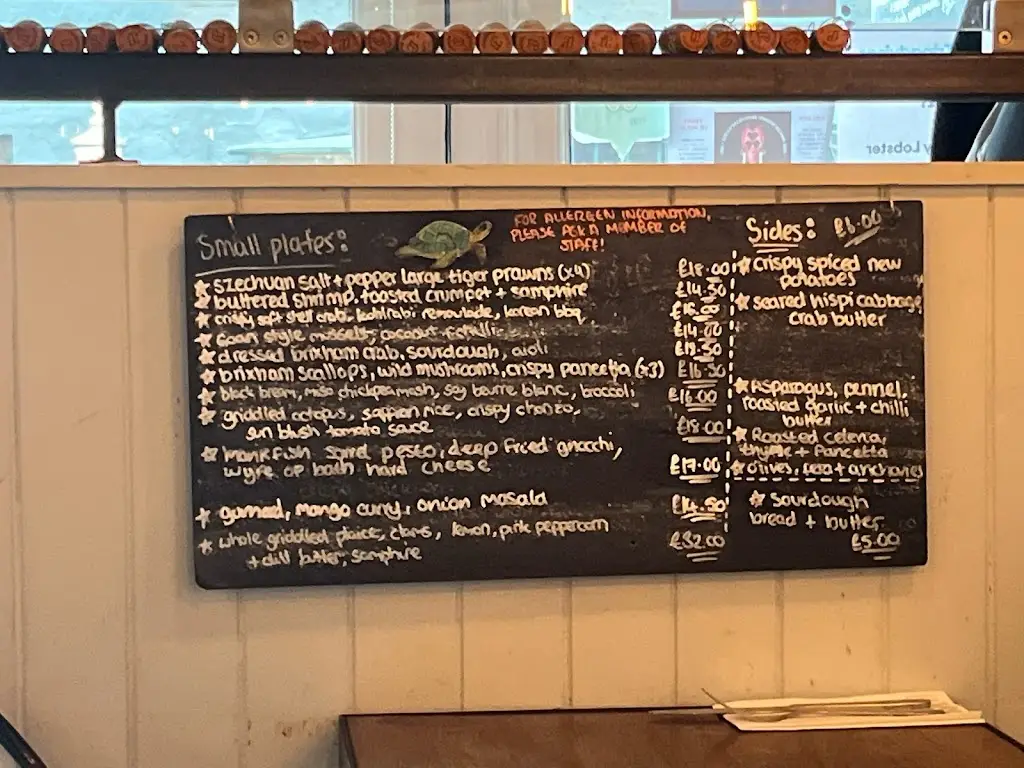 Small plates:
FOR ALLERGEN INFORMATION,
PLEASE ASK A MEMBER OF
STAFF!
szechuan salt + pepper large tiger prawns (x4) £18.00
buttered shrimp, toasted crumpet + samphine £14.50
crispy soft shell crab, kohlrabi remoulade, korean bbq
goan style mussels, coconut
dressed brixham crab, sourdough, aioli
brixham scallops, wild mushrooms, crispy pancetta (x3) £16.50
black bream, miso chickpea mash, soy beurre blanc, broccoli £16.00
griddled octopus, saffron rice, crispy chorizo,
sun blush tomato sauce £18.00
monkfish, pesto, deep fried gnocchi,
wyfe of bath hard cheese £17.00
gurnard, mango curry, onion masala £14.50
whole griddled plaice, clams, lemon, pink peppercorn £32.00
+ dill butter, samphire
Sides: £6.00
crispy spiced new
potatoes
seared hispi cabbage,
crab butter
Asparagus, pennel,
roasted garlic + chilli
butter
Roasted celeriac,
thyme + Pancetta
olives, feta + anchovies
sourdough
bread + butter
£5.00
y Lobster